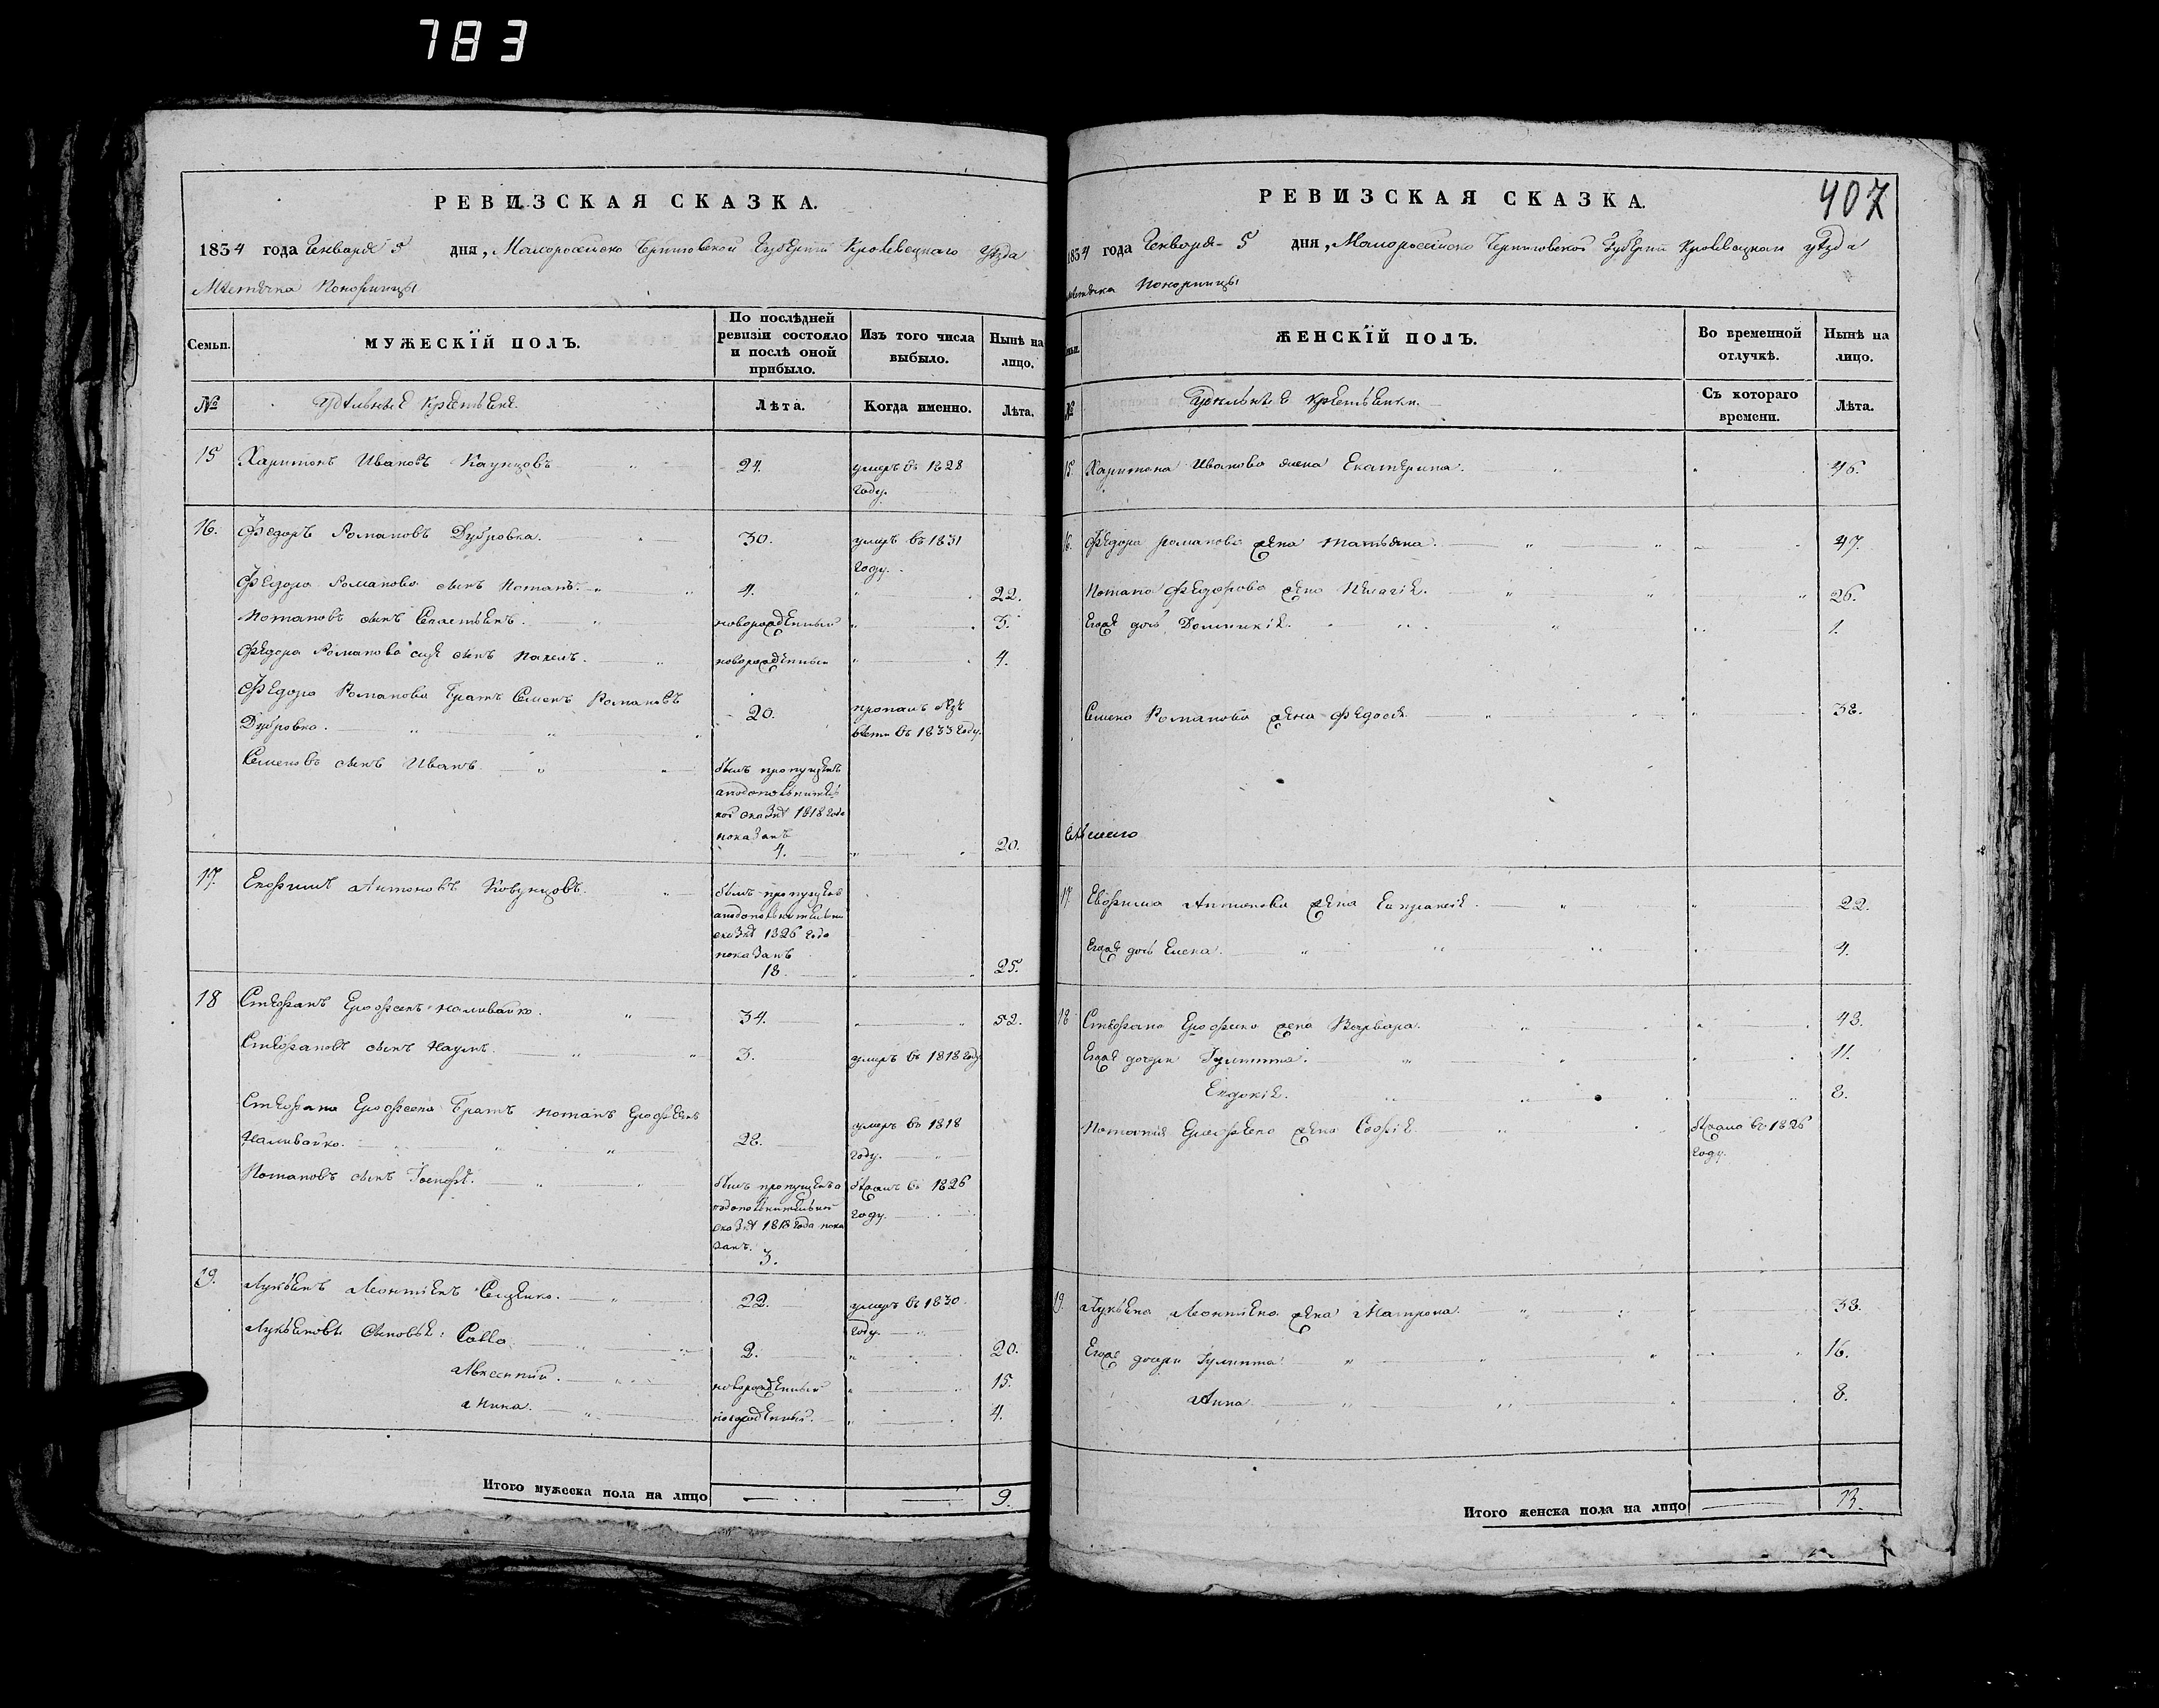 783
РЕВИЗСКАЯ СКАЗКА.
1834 года Генваря 5 дня, Малоросейско Черниговской Губернии Кролевецкаго Уезда
Местечка Понорницы
Семьи.
МУЖЕСКІЙ ПОЛЪ.
По послѣдней ревизіи состояло и послѣ оной прибыло.
Изъ того числа выбыло.
Нынѣ на лицо.
№
Удельные Крестьяне
Лѣта.
Когда именно.
Лѣта.
15 Харитонъ Ивановъ 24. умеръ въ 1828
году.
16. Федоръ Романовъ Дубровка. 30. умеръ въ 1831
году.
Федора Романова сынъ Потапъ. 4. 22.
Потаповъ сынъ новорожденный 3.
Федора Романова сынъ новорожденный 4.
Федора Романова братъ Семенъ Романовъ
Дубровка. 20. пропалъ безъ
вести въ 1833 году.
Семеновъ сынъ Иванъ былъ пропущенъ
а по дополнитель
ной сказке 1818 года
показанъ
4. 20.
17. Антоновъ былъ пропущенъ
а по дополнительной
сказке 1826 года
показанъ
18. 25.
18 Стефанъ Ерофеенъ Наливайко. 34. 52.
Стефановъ сынъ Наумъ. 3. умеръ въ 1818 году
Стефана Ерофеена братъ Потапъ Ерофеенъ
Наливайко. 28. умеръ въ 1818
году.
Потаповъ сынъ Іосифъ. былъ пропущенъ а
по дополнительной
сказке 1818 года пока
занъ.
3.
бежалъ въ 1826
году.
19. Лукьянъ Леонтіенъ Сещенко. 22. умеръ въ 1830
году.
Лукьяновы сыновья: Савва 2. 20.
новорожденный 15.
новорожденный. 4.
Итого мужеска пола на лицо 9.
РЕВИЗСКАЯ СКАЗКА.
407
1834 года Генваря 5 дня, Малоросейско Черниговской Губернии Кролевецкаго уезда
местечка Понорницы
Семьи.
ЖЕНСКІЙ ПОЛЪ.
Во временной отлучкѣ.
Нынѣ на лицо.
№
Удельные крестьянки.
Съ котораго времени.
Лѣта.
15. Харитона Иванова жена Екатерина. 46.
16. Федора Романова жена Татьяна. 47.
Потапа Федорова жена Пелагія. 26.
Егоже дочь Домникія. 1.
Семена Романова жена Федосія 38.
17. Евфима Антонова жена 22.
Егоже дочь Елена. 4.
18 Стефана Ерофеена жена Варвара. 43.
Егоже дочери Гулитта. 11.
Евдокія. 8.
Потапія Ерофеена жена Софія. бежала въ 1826
году.
19. Лукьяна Леонтіена жена Матрона. 38.
Егоже дочери Гулитта. 16.
Анна 8.
Итого женска пола на лицо 13.